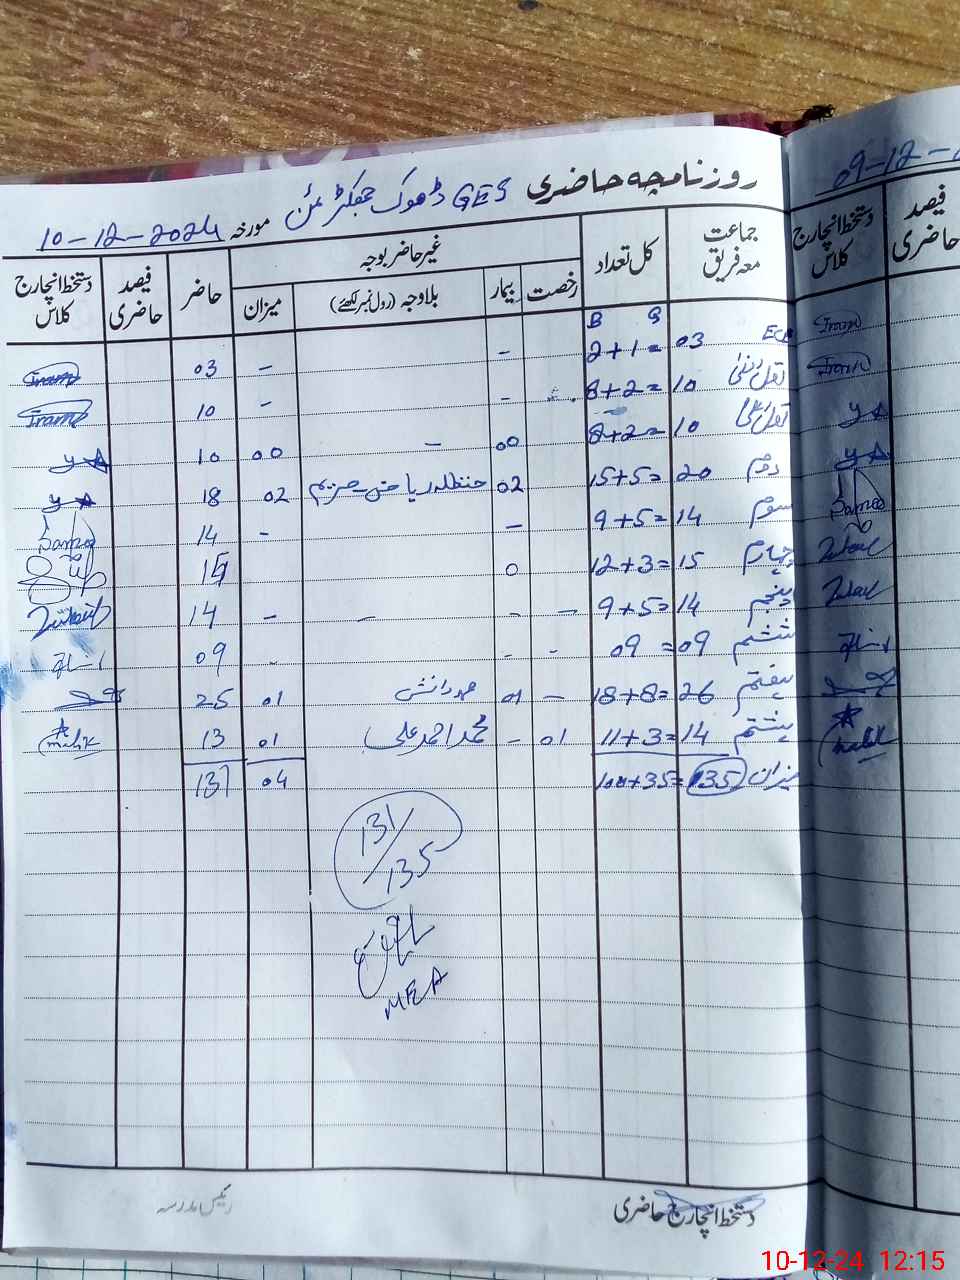 روزنامچہ حاضری GES ڈھوک جھکڑ ٹمن مورخہ 10-12-2024
جماعت معہ فریق کل تعداد غیر حاضر بوجہ حاضر فیصد حاضری دستخط انچارج کلاس
رخصت بیمار بلاوجہ (رول نمبر لکھئے) میزان
B G
ECE 03 2+1= - - 03 Iram
10 8+2= - - 10 Iram
10 8+2= 00 - 00 10
دوم 20 15+5= 02 حنظلہ ریاض - مریم 02 18
سوم 14 9+5= - - 14
چہارم 15 12+3= 0
پنجم 14 9+5= - - - - 14
ششم 09 09= - - - 09
ہفتم 26 18+8= - 01 محمد دانش 01 25
ہشتم 14 11+3= 01 - محمد احمد علی 01 13 malik
میزان 135 100+35= 04 131
131/135
MEA
دستخط انچارج حاضری رئیس مدرسہ
09-12-
فیصد حاضری دستخط انچارج کلاس
Iram
Iram
malik
10-12-24 12:15